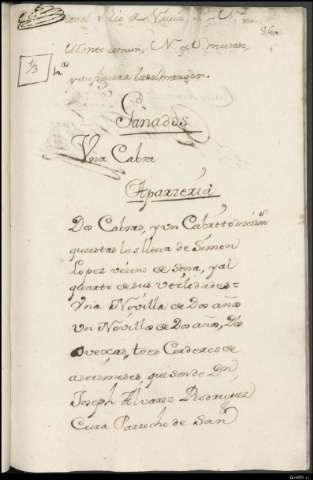 Monte comun, N. y S. murado,
y su figura la del margen.
1/3
Ganados
Vna Cabra
Aparzeria
Dos Cabras, y vn Cabrito
questas las lleva de Simon
Lopez vezino de Sena, y al
quarto de sus vtilidades =
Vna Novilla de Dos años
Vn Novillo de Dos años, Dos
ovexas, tres Corderos de
a seis meses, que son de Dn
Joseph Alvarez Rodriguez
Cura Parrocho de San